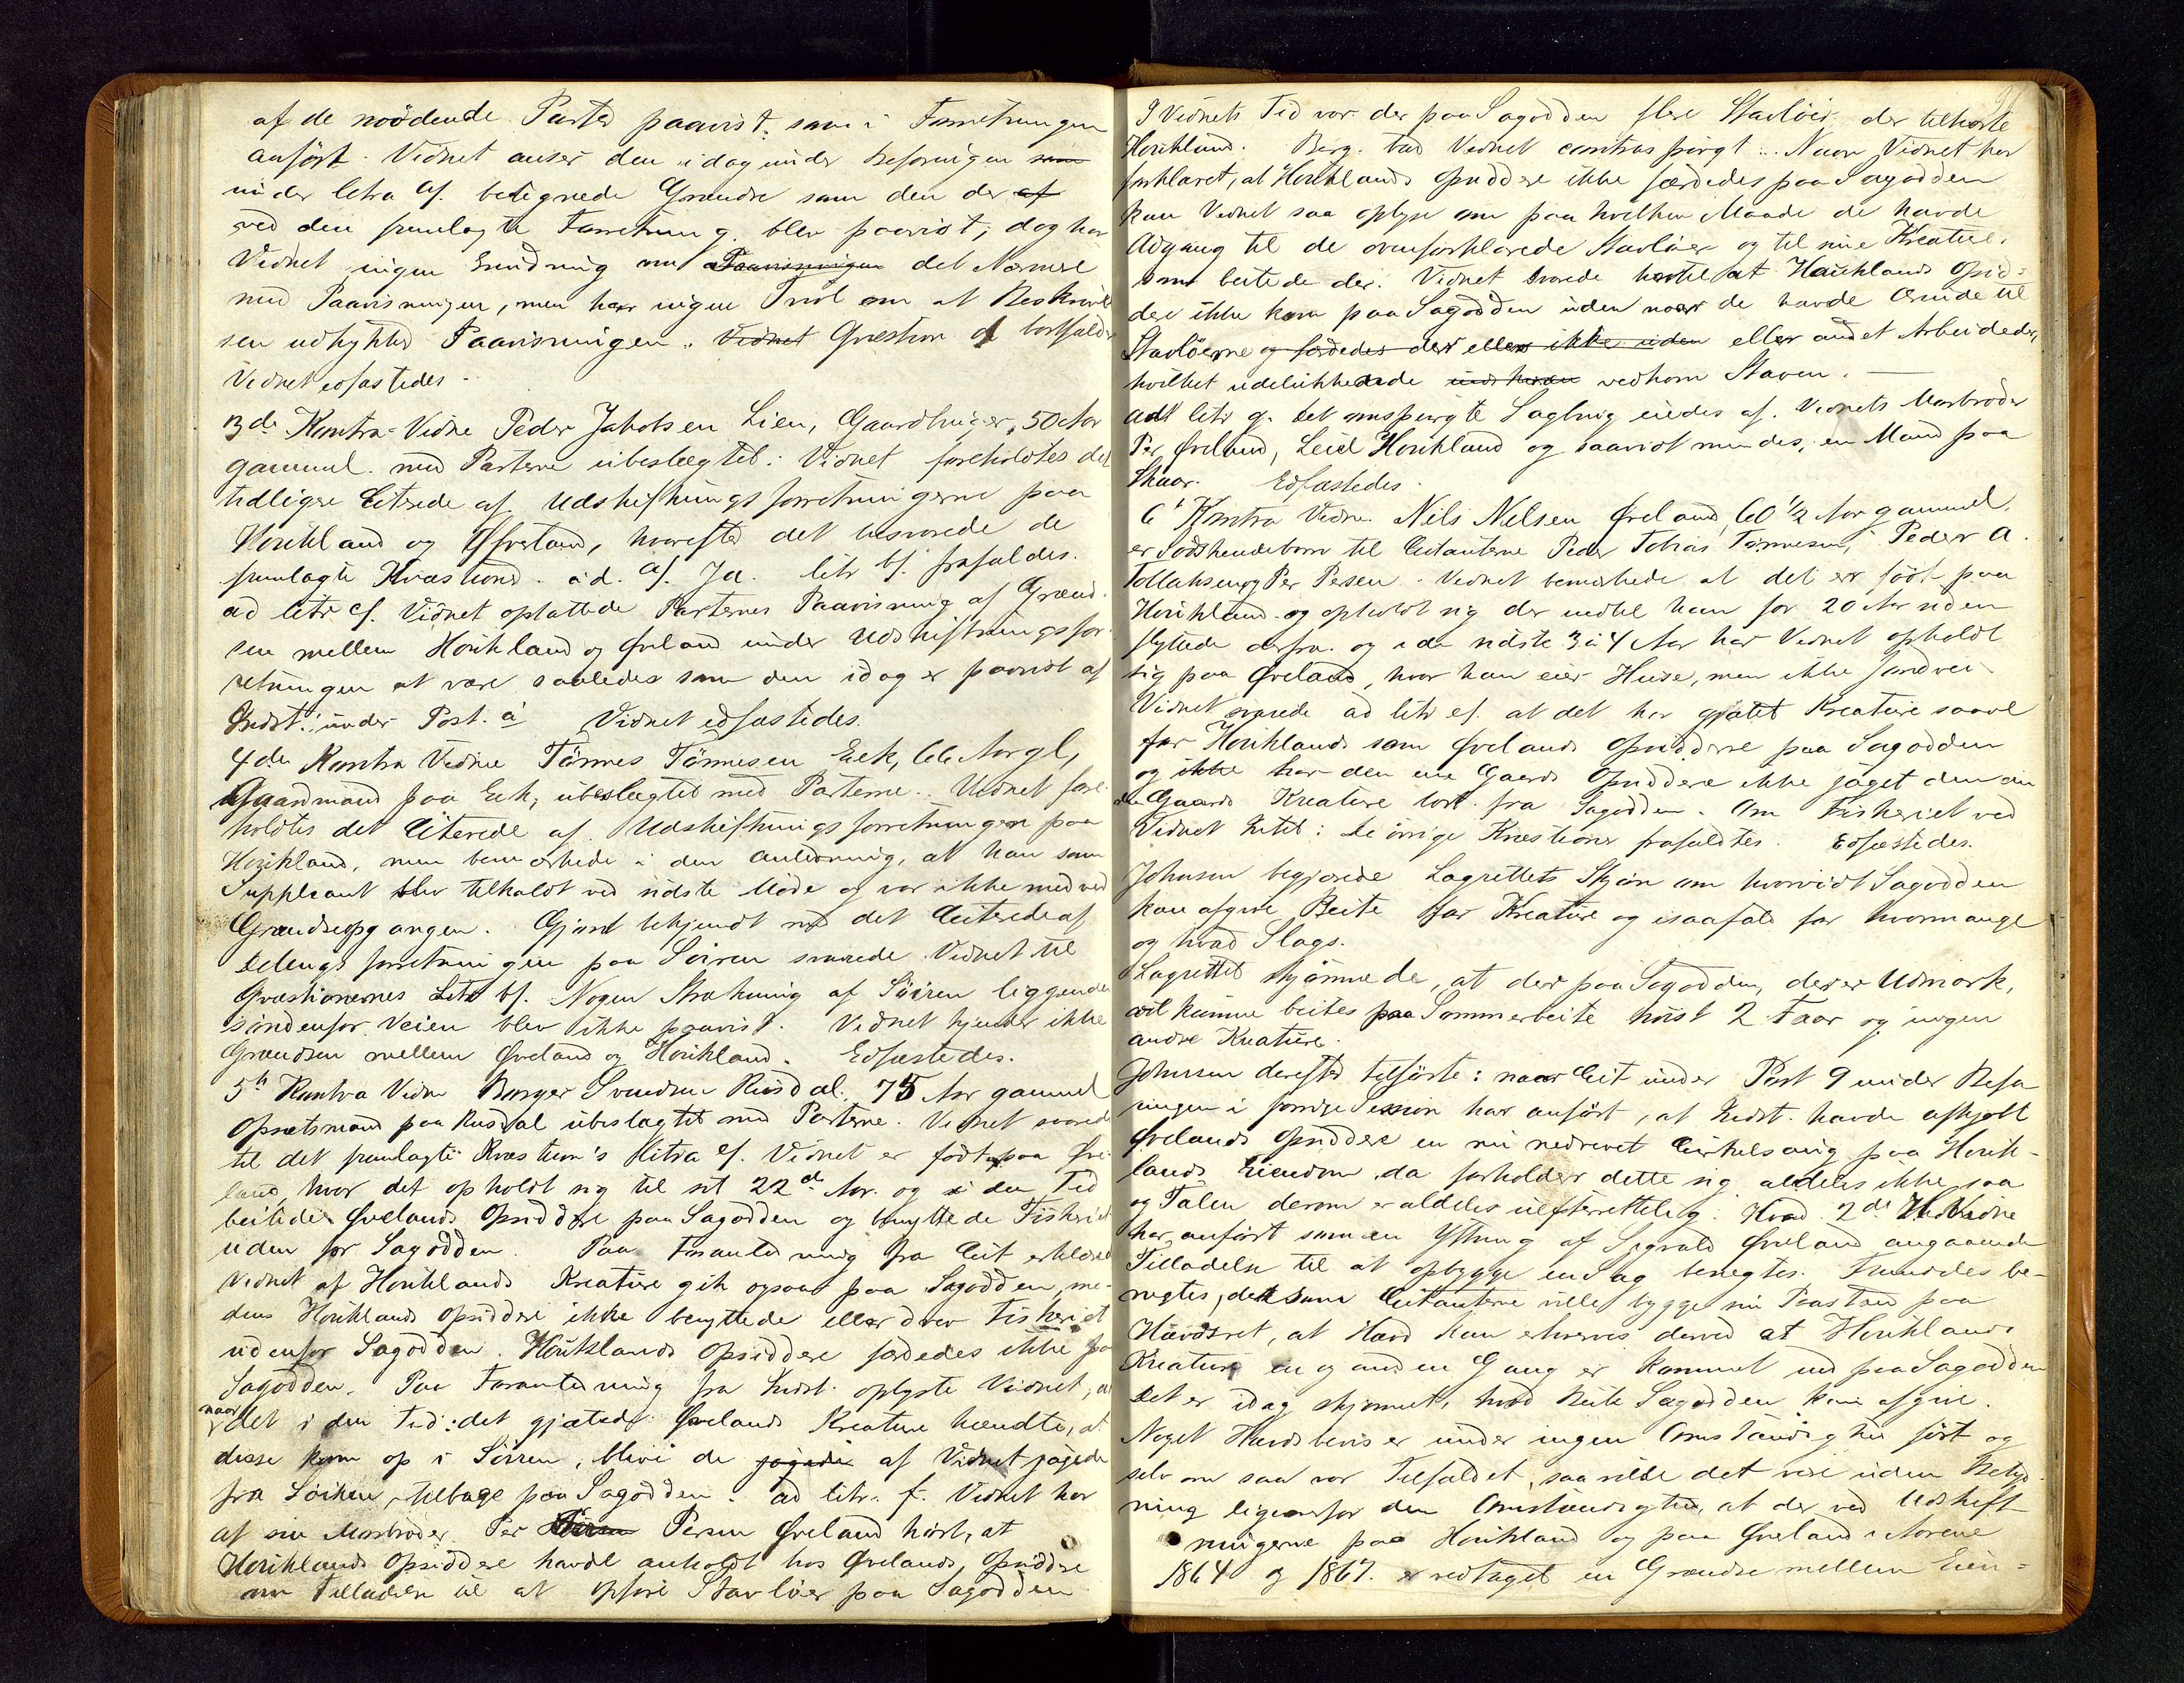 af de mödende Parter paavist, som i Forretningen
anfört. Vidnet anser den idag under Befaringen som
under litra a/. betegnede Grændse som den der af
ved den fremlagte Forretning blev paavist; dog har
Vidnet ingen Erindring om Paavisningen det Nærmere
med Paavisningen, men har ingen Tvivl om at Beskrivel
sen udtrykker Paavisningen. Vidnet Qvæstion d bortfaldt
Vidnet edfæstedes.
3die Kontra-Vidne Peder Jakobsen Lien, Gaardbruger, 50 Aar
gammel. med Parterne ubeslægtet: Vidnet foreholdtes det
tidligere Citerede af Udskiftningsforretningerne paa
Houkland og Øveland, hvorefter det besvarede de
fremlagte Kvæstioner. ad. a/. Ja. litr b/. frafaldes.
ad litr c/. Vidnet opfattede Parternes Paavisning af Grænd-
sen mellem Houkland og Øveland under Udskiftningsfor-
retningen at være saaledes som den idag er paavist af
Indst. under Post. a Vidnet edfæstedes.
4de Kontra Vidne Tönnes Tönnesen Eek, 66 Aar gl,
Gaardmand paa Eek, ubeslægtet med Parterne. Vidnet fore-
holdtes det Citerede af Udskiftningsforretningen paa
Houkland, men bemærkede i den Anledning, at han som
Suppleant blev tilkaldt ved sidste Möde og var ikke med ved
Grændseopgangen. Gjort bekjendt med det Citerede af
Delingsforretningen paa Söiren svarede Vidnet til
Qvæstionernes Litr b/. Nogen Strækning af Söiren liggende
söndenfor Veien blev ikke paavist. Vidnet kjender ikke
Grændsen mellem Øveland og Houkland. Edfæstedes.
5te Kontra Vidne Borger Svendsen Rusdal. 75 Aar gammel
Opsætsmand paa Rusdal ubeslægtet med Parterne. Vidnet svarede
til det fremlagte Kvæstion's litra e/. Vidnet er födt paa Øve-
land, hvor det opholdt sig til sit 22de Aar. og i den Tid
beitede Øvelands Opsiddere paa Sagodden og benyttede Fiskeriet
uden for Sagodden. Paa Foranledning fra Cit erklærede
Vidnet at Houklands Kreature gik ogsaa paa Sagodden, me-
dens Houklands Opsiddere ikke benyttede eller drev Fiskeriet
udenfor Sagodden. Houklands Opsiddere færdedes ikke paa
Sagodden. Paa Foranledning fra Indst. oplyste Vidnet, at
naar det i den Tid det gjætede Ovelands Kreature hændte, at
disse kom op i Söiren, blive de jagede af Vidnet jagede
fra Söiren, tilbage paa Sagodden. ad litr. f. Vidnet har
af sin Morbroder Per Persen Øveland hört, at
Houklands Opsiddere havde anholdt hos Øvelands Opsiddre
om Tilladelse til at opføre Stavlöer paa Sagodden
I Vidnets Tid var der paa Sagodden flere Stavlöer der tilhørte
Houkland. Berg. bad Vidnet contraspurgt: Naar Vidnet har
forklaret, at Houklands Opsiddere ikke færdedes paa Sagodden
kan Vidnet saa oplyse om paa hvilken Maade de havde
Adgang til de ovenforklarede Stavlöer og til sine Kreature.
som beitede der. Vidnet svarede hertil at Houklands Opsid-
dere ikke kom paa Sagodden uden naar de havde Ærinde til
Stavlöerne og færdedes der ellers ikke uden eller andet Arbeide der,
hvilket udelukkende vedkom Staven.
Adl litr g. Det omspurgte Sagbrug eiedes af. Vidnets Morbroder
Per Øveland, Leid Houkland og saavidt mindes, en Mand paa
Skaar. Edfæstedes.
6te Kontra Vidne. Nils Nilsen Øveland 60 1/2 Aar gammel.
er Sødskendebarn til Citanterne Peder Tobias Tönnesen, Peder A.
Tollaksen og Per Persen. Vidnet bemærkede at det er födt paa
Houkland og opholdt sig der indtil han for 20 Aar siden
flyttede derfra. og i de sidste 3 á 4 Aar har Vidnet opholdt
sig paa Øveland, hvor han eier Huse, men ikke Jordvei
Vidnet svarede ad litr e/. at det har gjætet Kreature saavel
for Houklands som Øvelands Opsiddere paa Sagodden
og ikke har den ene Gaards Opsiddere ikke jaget den an
den Gaards Kreature bort fra Sagodden. Om Fiskeriet ved
Vidnet Intet: De övrige Kvæstioner frafaldtes. Edfæstedes.
Johnsen begjærede Lagrettets Skjön om hvorvidt Sagodden
kan afgive Beite for Kreature og isaafald for hvormange
og hvad Slags.
Lagrettet skjönnede, at der paa Sagodden, der er Udmark,
vil kunne beites paa Sommerbeite höist 2 Faar og ingen
andre Kreature.
Johnsen derefter tilförte: naar Cit under Post 9 under Befa-
ringen i forrige Session har anført, at Indst. havde afkjøbt
Øvelands Opsiddere en nu nedrevet Cirkelsaug paa Houk-
lands Eiendom da forholder dette sig aldeles ikke saa
og Talen derom er aldeles uefterrettelig. Hvad 2det Hvidne
har anført som en Ytring af Sigvald Øveland angaaende
Tilladelse til at opbygge en Sag benegtes. Fremdeles be-
negtes, dersom Citanterne ville bygge sin Paastand paa
Hævdsret, at Hævd kan erhverves derved at Houklands
Kreature en og anden Gang er kommet ud paa Sagodden
Det er idag skjönnet, hvad Beite Sagodden kan afgive.
Noget Hævdsbevis er under ingen Omstændighed fört og
selv om saa var Tilfaldet, saa vilde det være uden Betyd-
ning ligeoverfor den Omstændighed, at der ved Udskift-
ningerne paa Houkland og paa Øveland i Aarene
1864 og 1867. er vedtaget en Grændse mellem Eien-